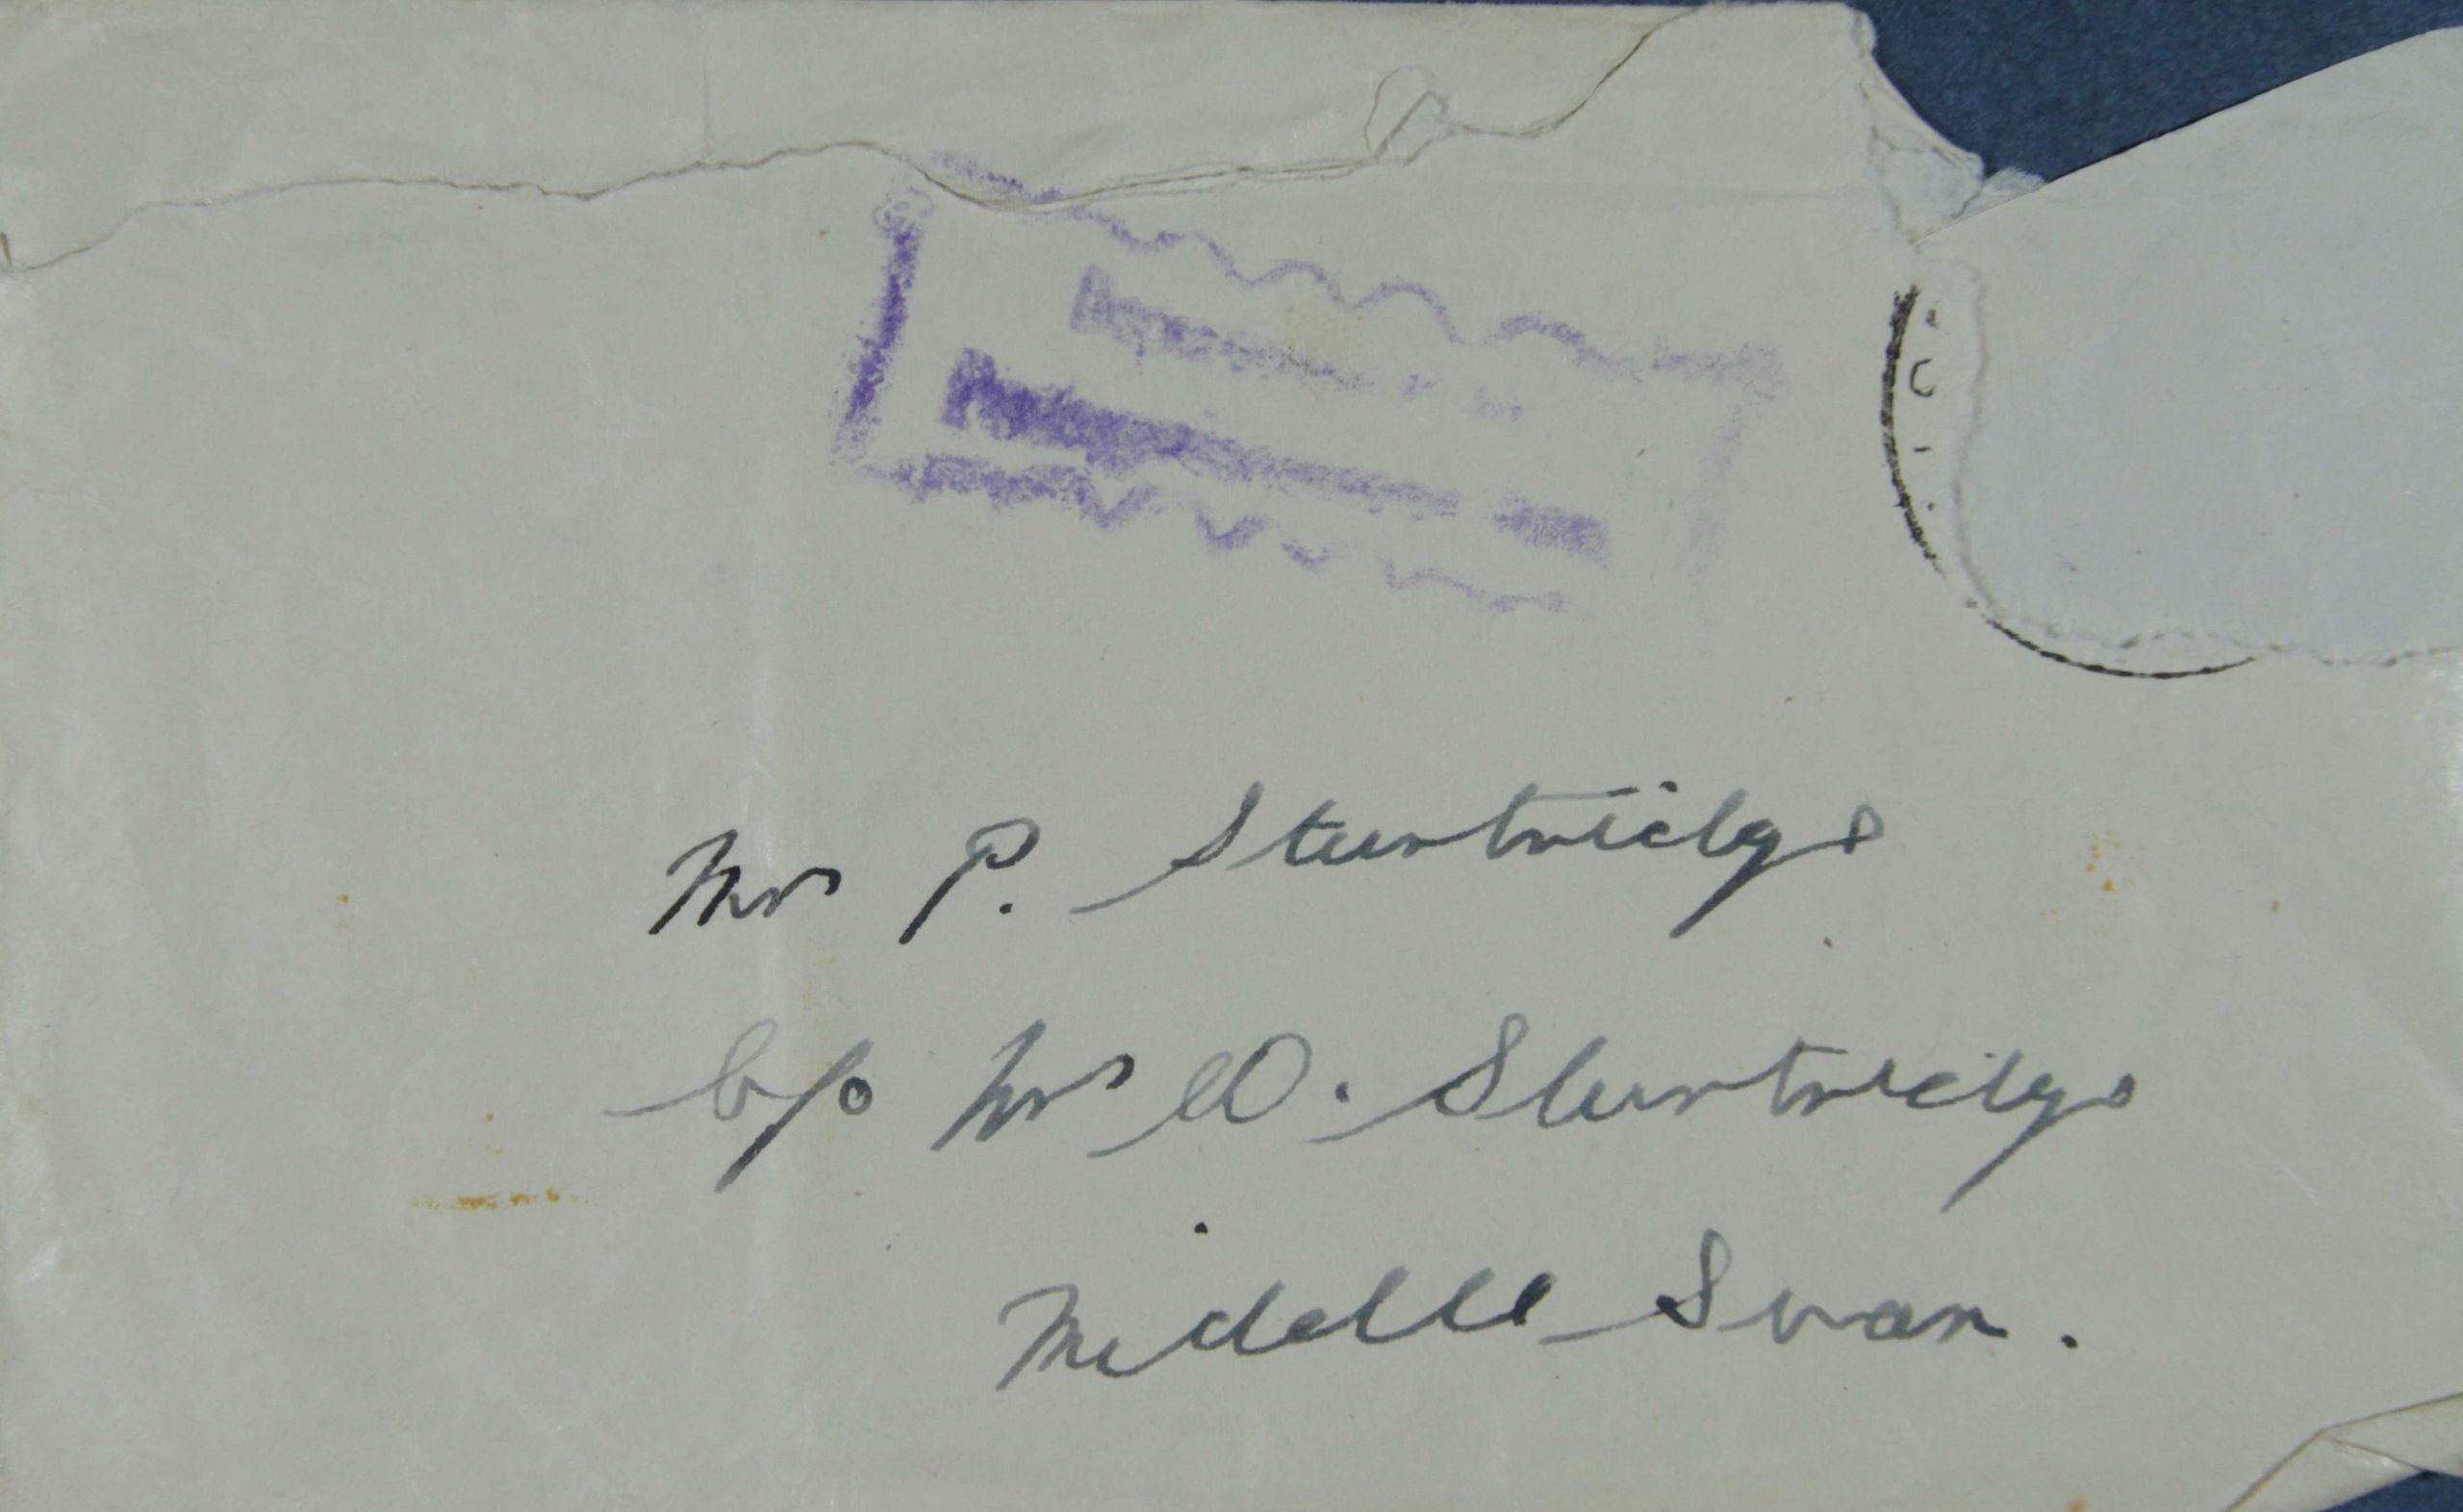 Mr P. Sturtridge
C/o Mr W. Sturtridge
Middle Swan.